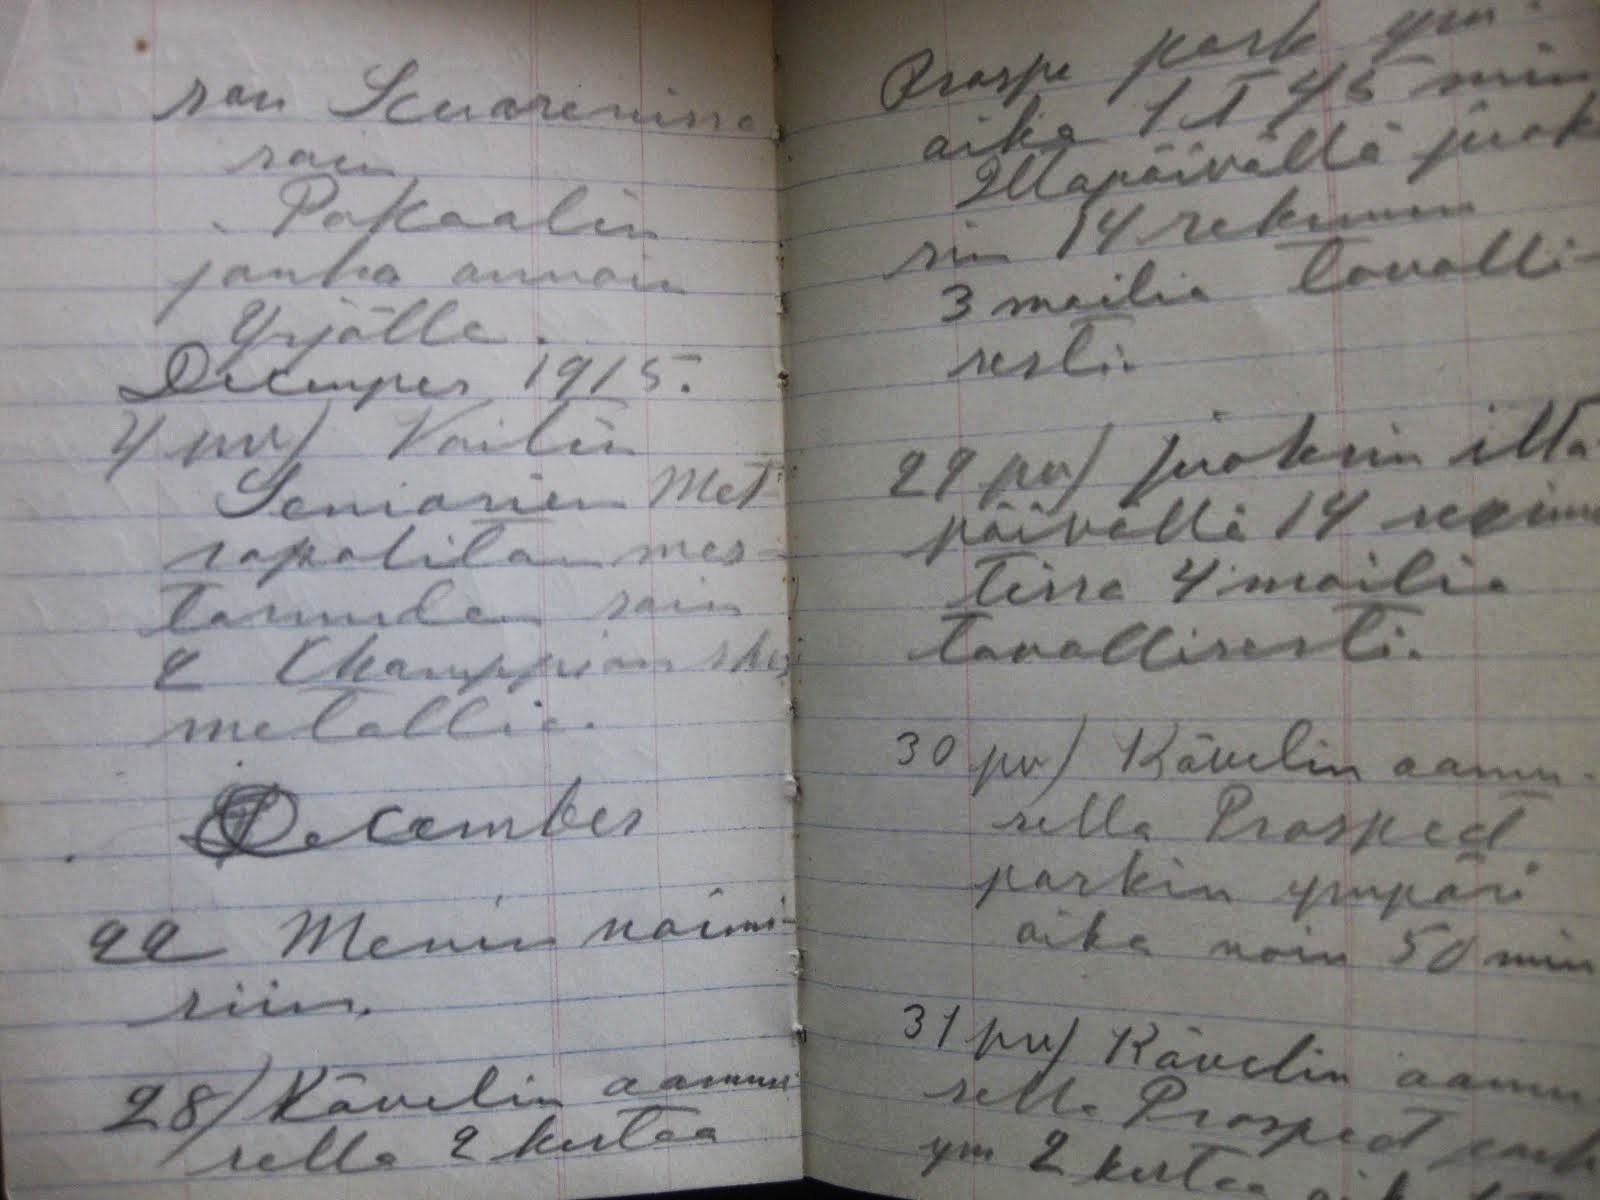 san Scuarenissa
sain
Pokaalin
jonka annoin
Yrjölle.
Decemper 1915.
4 pv) Voitin
Seniorien Met-
ropolitan mes-
taruuden sain
2 Championship
metallia.
December
22 Menin naimi-
siin.
28) Kävelin aamu
sella 2 kertaa
Prospe park ym.
aika 1 t 45 min
Iltapäivällä juok
sin 14 rekimen
3 mailia tavalli-
sesti.
29 pv) juoksin ilta
päivällä 14
tissa 4 mailia
tavallisesti.
30 pv) Kävelin aamu-
sella Prosped
parkin ympäri
aika noin 50 min
31 pv) Kävelin aamu
sella Prosped park
ym 2 kertaa aik